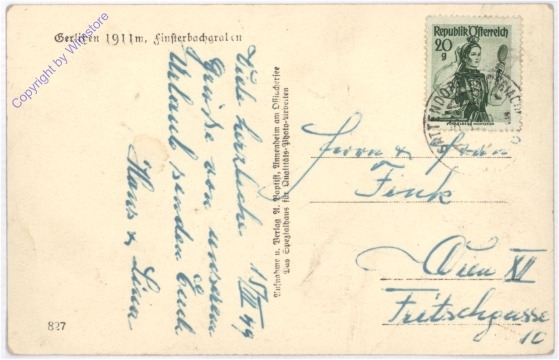 Gerlitzen 1911m, Finsterbachgraben
Viele herzliche 15/VIII 49
Grüße von unserem
Urlaub senden Euch
Hans & Lina
Aufnahme u. Verlag A. Baptist, Annenheim am Ossiachersee
Das Spezialhaus für Qualitäts-Photo-Arbeiten
827
Republik Österreich
20
g
SATTENDORF
Herrn & Frau
Fink
Wien XV
Fritschgasse
10
Copyright by Winstore